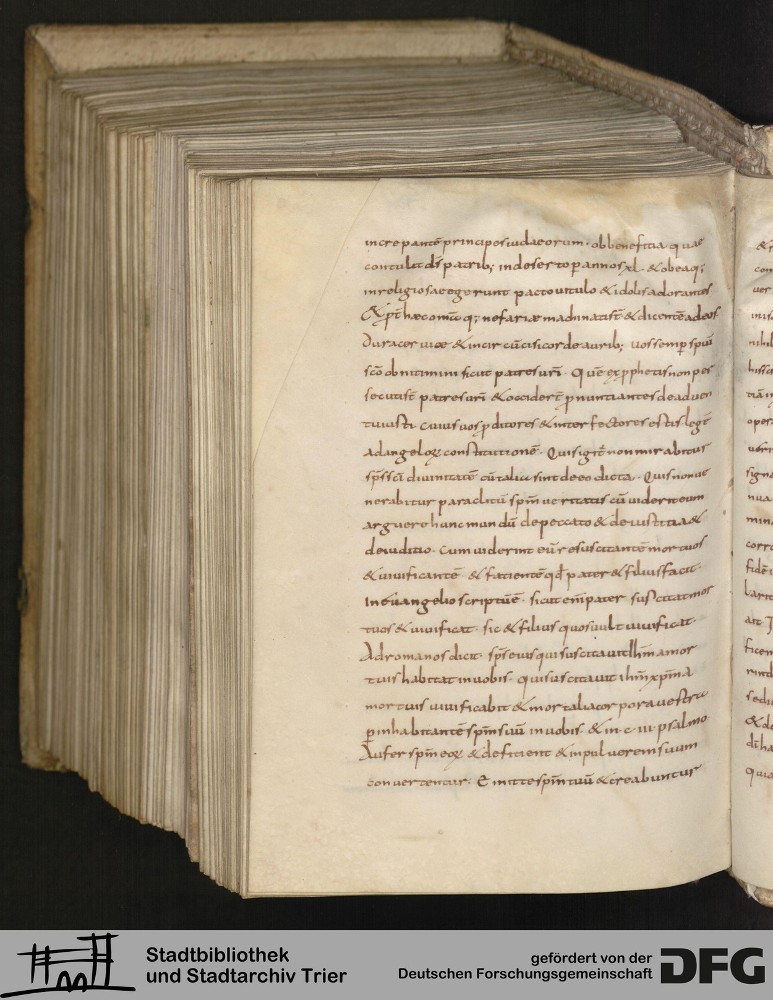 increpantē principes iudaeorum · ob beneficia quae
contulit d̄s patrib; in deserto p annos xl · & ob ea q;
inreligiosae egerunt pacto uitulo & idolis adorantes
haec omīa q; nefariae machinati st̄ & dicentē ad eos
Dura ceruice & incircūcisi corde & aurib; uos semp̄ spūi
sc̄o obnitimini sicut patres ur̄i · Quē ex p̄phetis non per
secuti st̄ patres ur̄i & occider̄t p̄nuntiantes de aduen
tu iusti · cuius uos p̄ditores & interfectores estis legē
ad angeloꝝ constitutionē · Quis igit̄ non mirabitur
sp̄s sc̄i diuinitatē cū talia sint de eo dicta · Quis non ue
nerabitur paraclitū sp̄m ueritatis cū uiderit eum
arguere hunc mundū de peccato & de iustitia &
de iuditio · Cum uiderint eū resuscitantē mortuos
& uiuificantē · & facientē qd̄ pater & filius facit ·
In euangelio scriptū ē · sicut eni pater suscitat mor
tuos & uiuificat · sic & filius quos uult uiuificat ·
Ad romanos dicit · sp̄s eius qui suscitauit ih̄m a mor
tuis habitat in uobis · qui suscitauit ih̄m xp̄m a
mortuis uiuificabit & mortalia corpora uestra
p̄ inhabitantē sp̄m suū in uobis · & in · c · iii · psalmo
Aufer sp̄m eoꝝ & deficient & in puluerem suum
conuertentur · Emitte sp̄m tuū & creabuntur
Stadtbibliothek
und Stadtarchiv Trier
gefördert von der
Deutschen Forschungsgemeinschaft
DFG